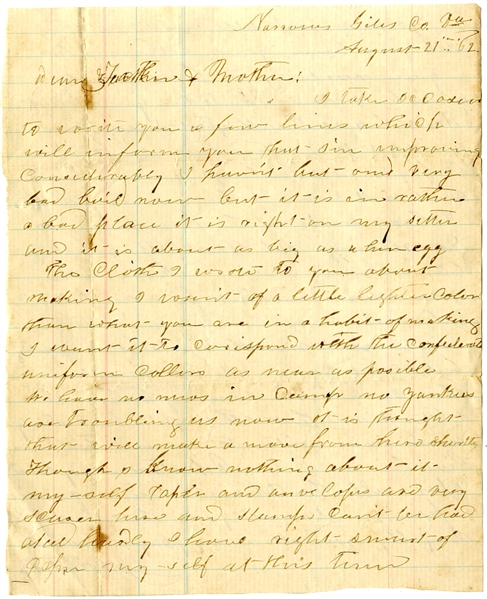 Narrows Giles Co. Va
August 21st / 62
Dear Father & Mother;
I take occasion
to write you a few lines which
will inform you that I'm improving
considerably I havn't but one very
bad boil now but it is in rather
a bad place it is right on my setter
and it is about as big as a hen egg
The Cloth I wrote to you about
making I want of a little lighter color
than what you are in a habit of making
I want it to corispond with the Confederate
uniform collors as near as posible
We have no news in Camp no Yankies
are troubling us now it is thought
that will make a move from here shortly
Though I know nothing about it
my-self Paper and anvelopes are very
scarce here and stamps can't be had
at all hardly I have right smart of
Paper my-self at this time